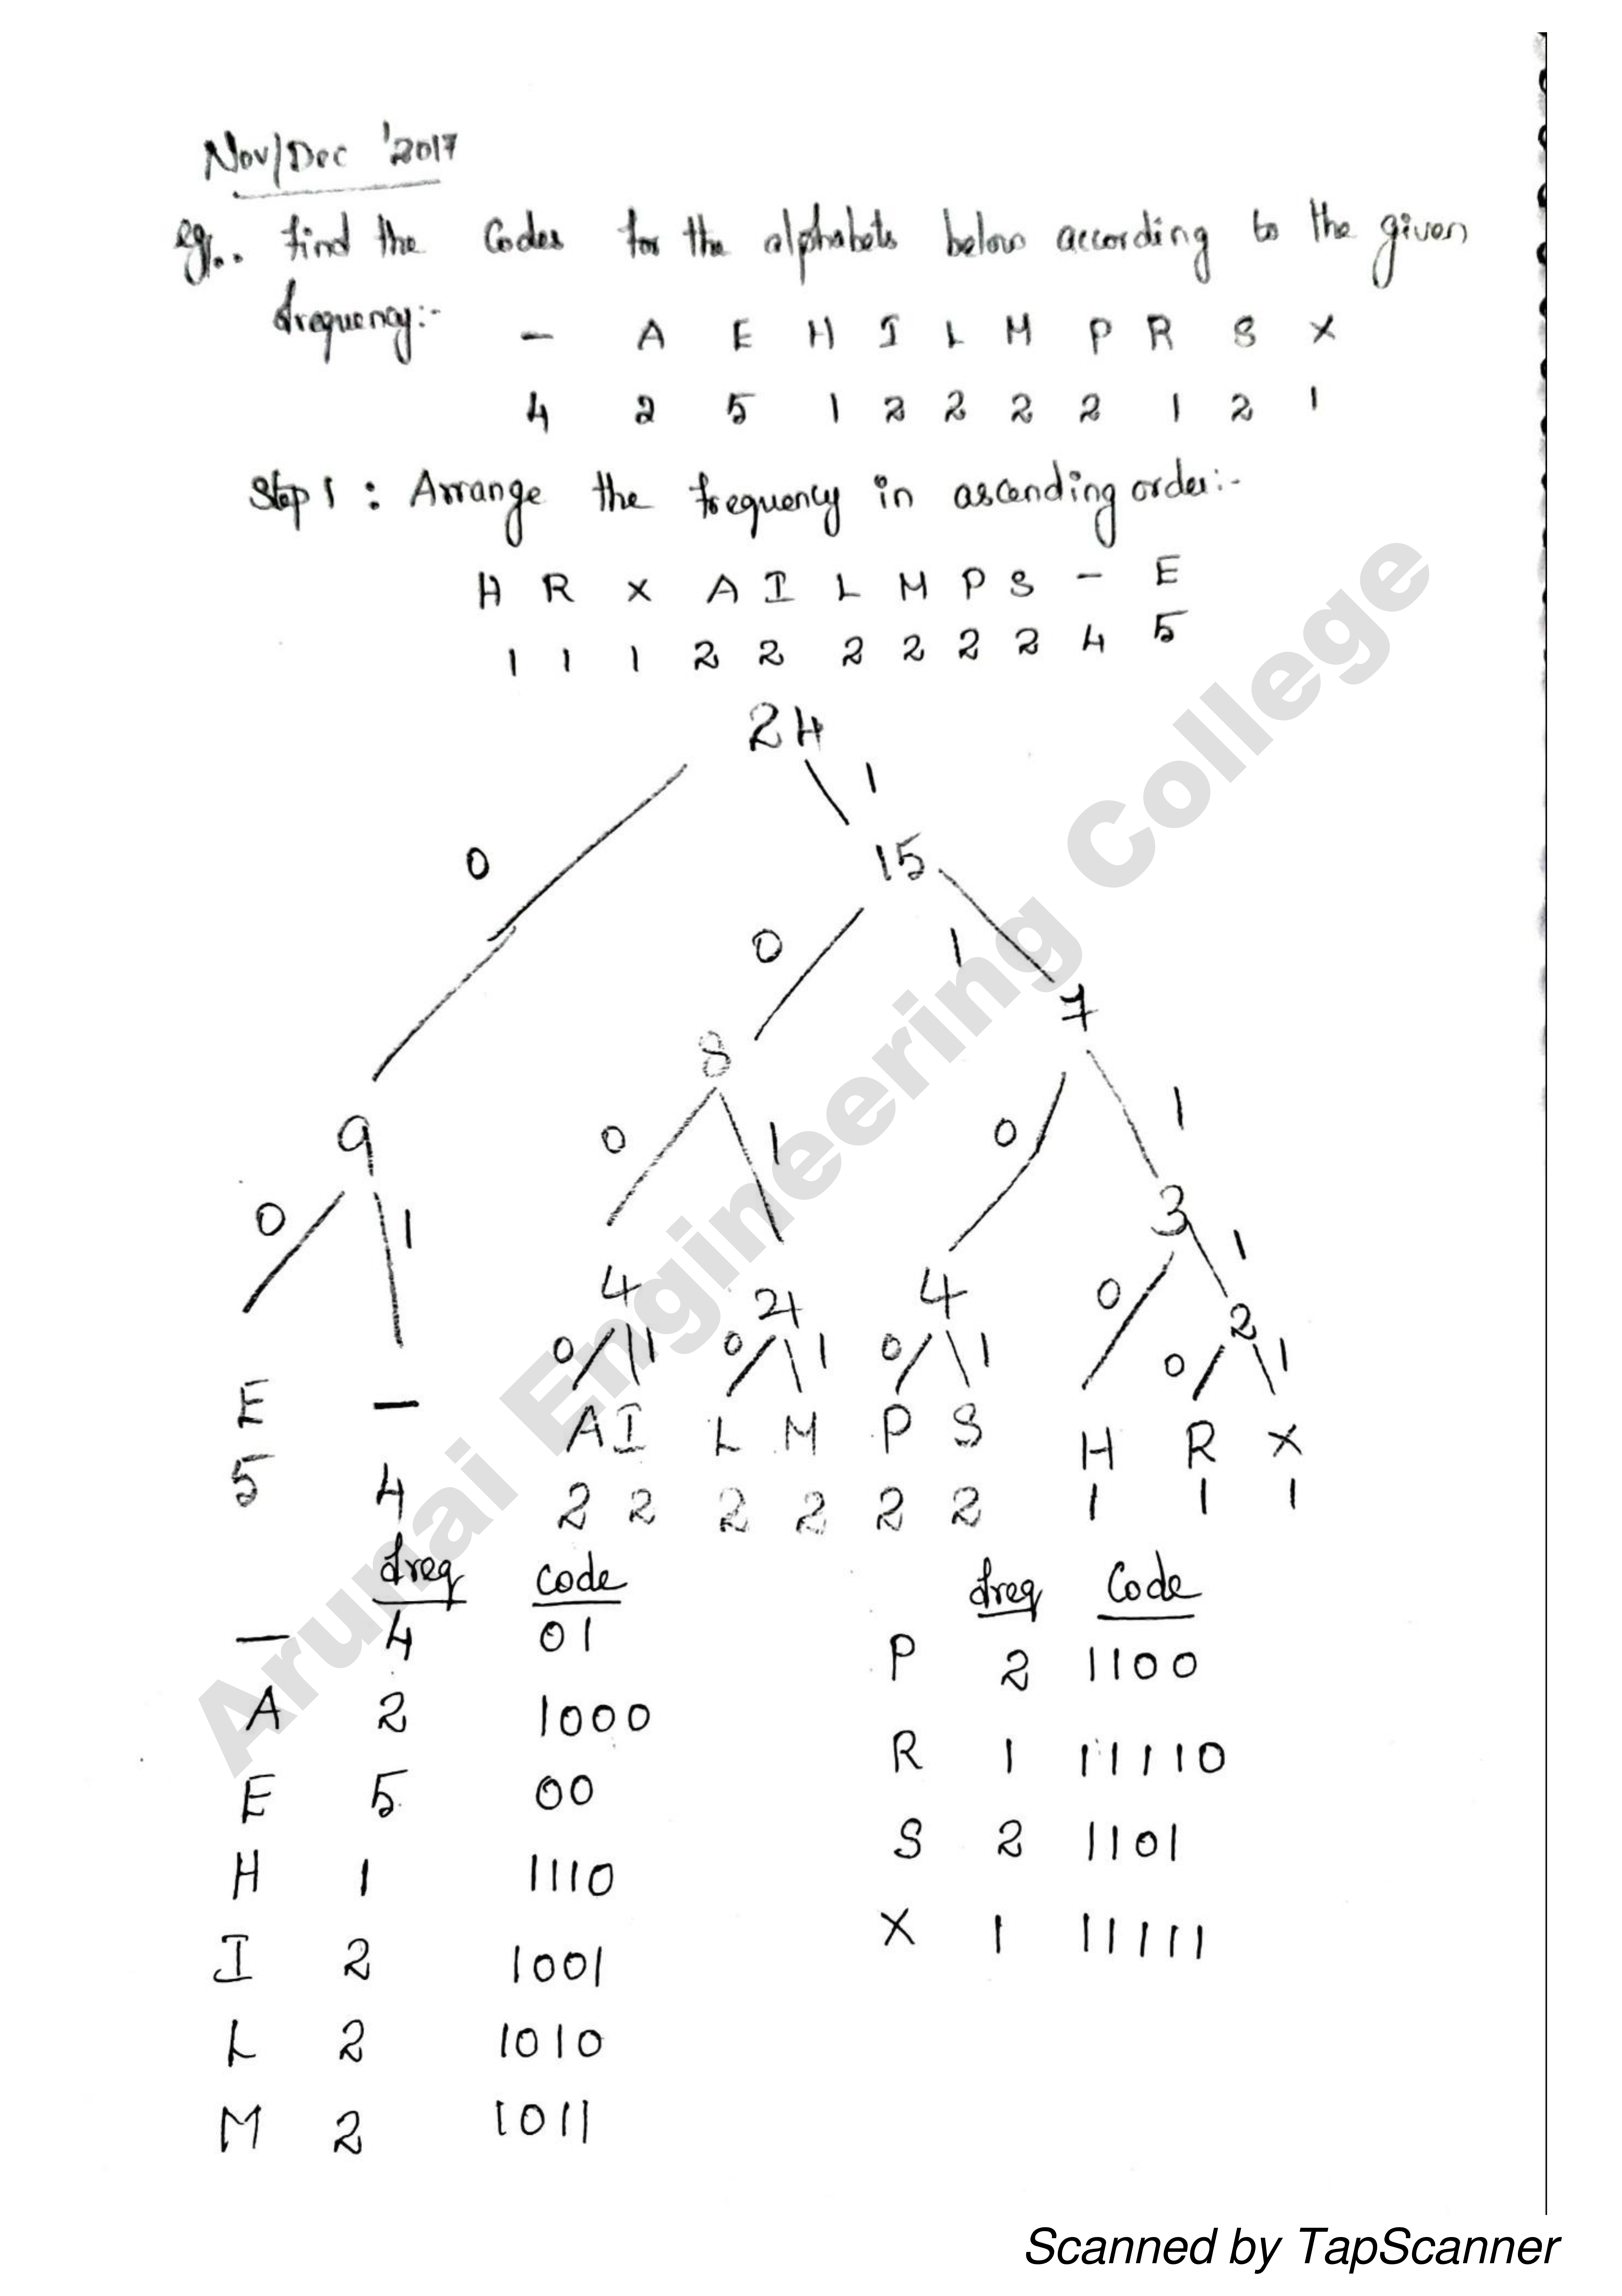 Nov/Dec '2017
eg:. find the Codes for the alphabets below according to the given
frequency:-
— A E H I L M P R S X
4 2 5 1 2 2 2 2 1 2 1
Step 1 : Arrange the frequency in ascending order:-
H R X A I L M P S — E
1 1 1 2 2 2 2 2 2 4 5
24
0 1
15
0 1
7
8
9
0 1 0 1 0 1
3
0 1
4 4 4 2
0 1 0 1 0 1 0 1
E — A I L M P S H R X
5 4 2 2 2 2 2 2 1 1 1
freq code
— 4 01
A 2 1000
E 5 00
H 1 1110
I 2 1001
L 2 1010
M 2 1011
freq Code
P 2 1100
R 1 11110
S 2 1101
X 1 11111
Arunai Engineering College
Scanned by TapScanner